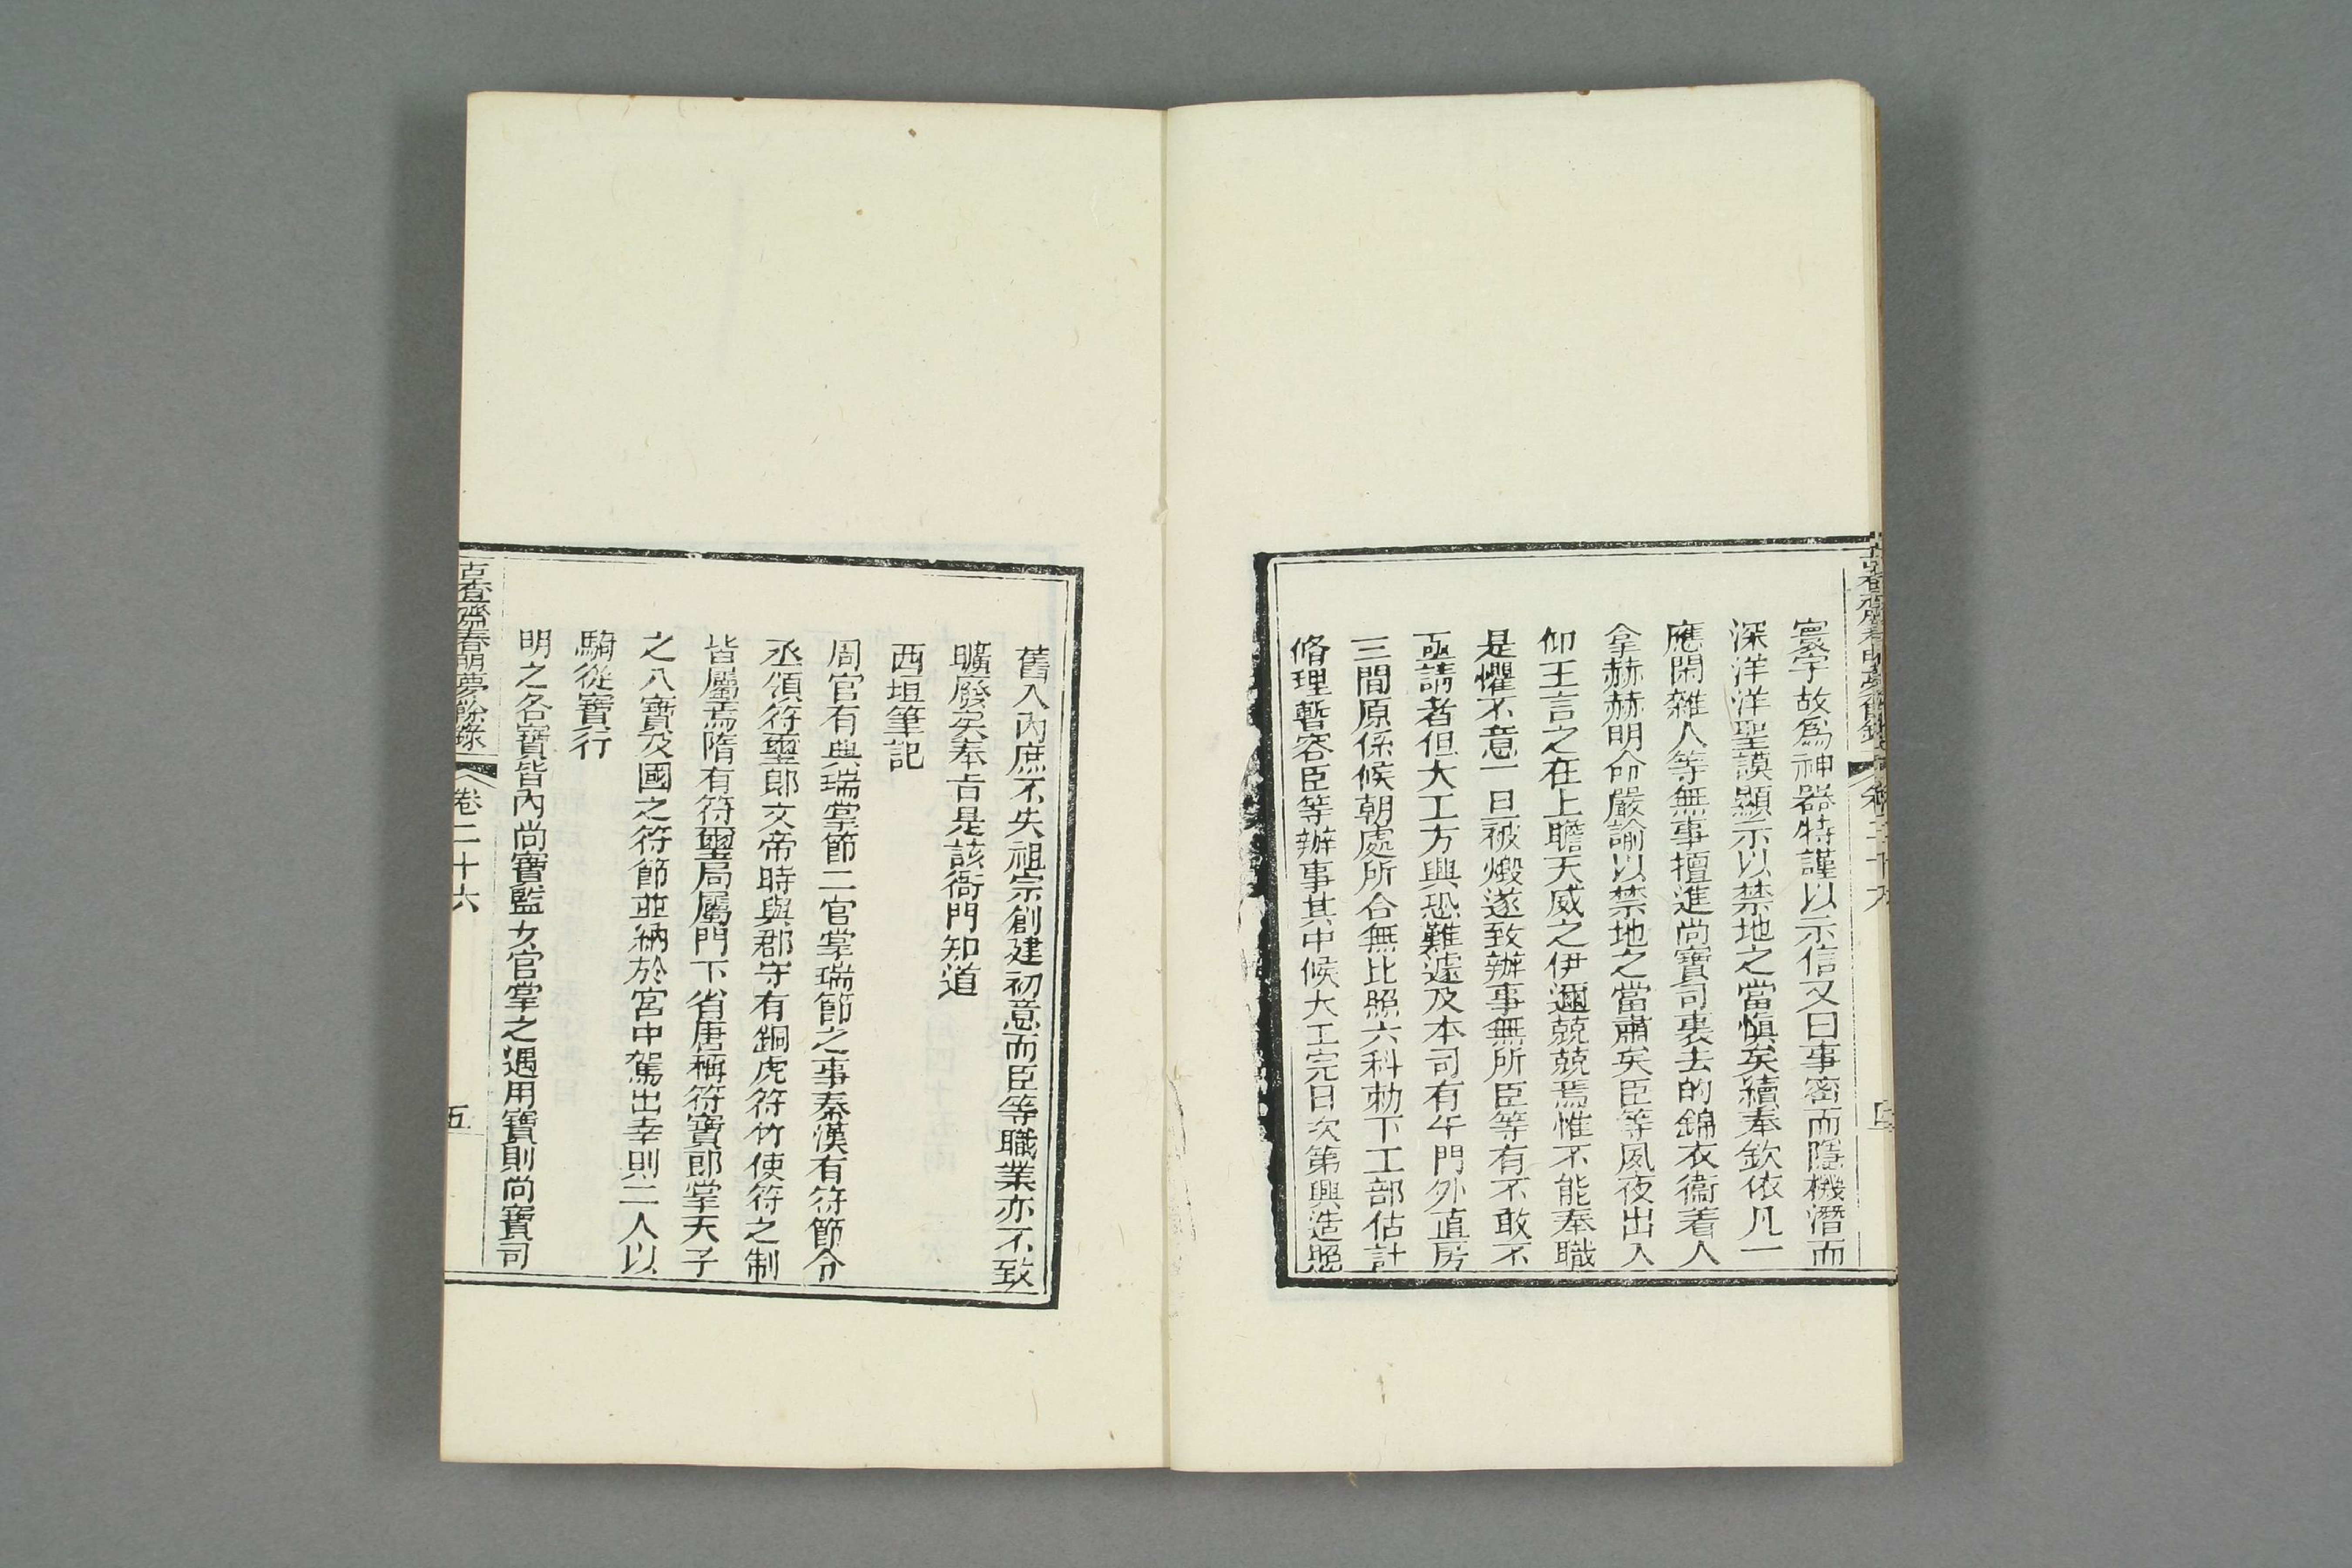 寰宇故爲神器特謹以示信又曰事密而隱機潛而
深洋洋聖謨顯示以禁地之當愼矣續奉欽依凡一
應閑雜人等無事擅進尚寶司裏去的錦衣衞着人
拿赫赫明命嚴諭以禁地之當肅矣臣等夙夜出入
仰王言之在上瞻天威之伊邇兢兢焉惟不能奉職
是懼不意一旦被燬遂致辦事無所臣等有不敢不
亟請者但大工方興恐難遽及本司有午門外直房
三間原係候朝處所合無比照六科勅下工部估計
脩理暫容臣等辦事其中候大工完日次第興造照
舊入內庶不失祖宗創建初意而臣等職業亦不致
曠廢矣奉旨是該衙門知道
西垣筆記
周官有典瑞掌節二官掌瑞節之事秦漢有符節令
丞領符璽郎文帝時與郡守有銅虎符竹使符之制
皆屬焉隋有符璽局屬門下省唐稱符寶郎掌天子
之八寶及國之符節並納於宮中駕出幸則二人以
騎從寶行
明之各寶皆內尚寶監女官掌之遇用寶則尚寶司
古香齋春明夢餘錄 卷二十六 五